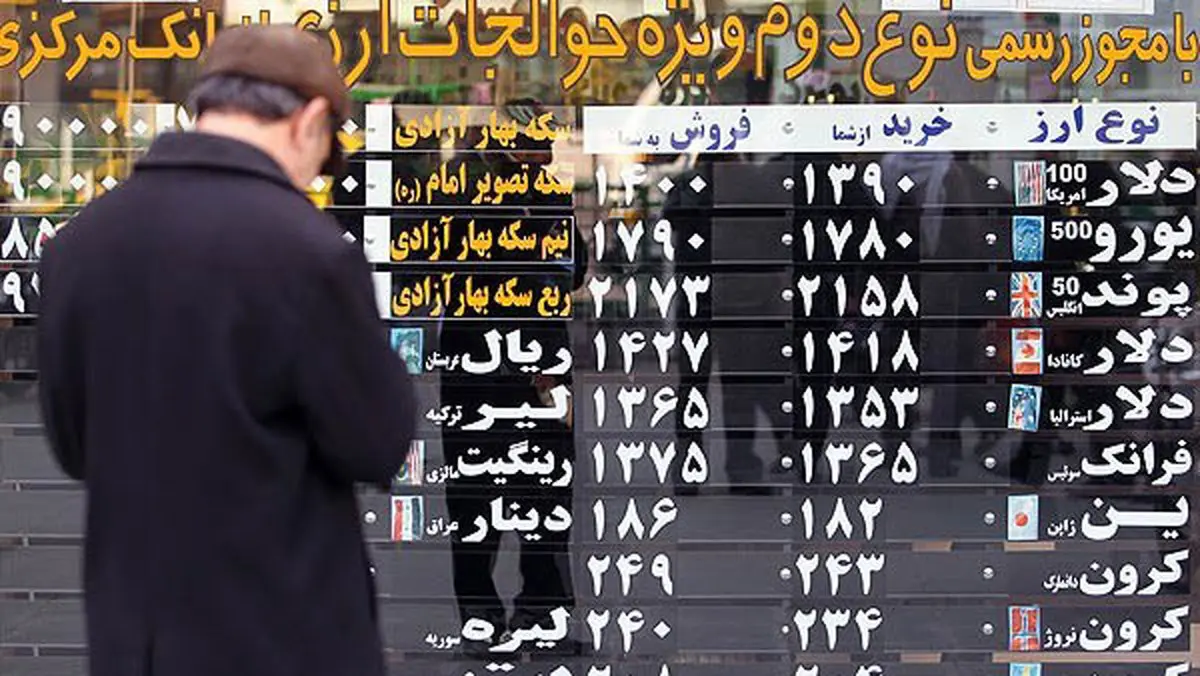 با مجوز رسمی نوع دوم ویژه حوالجات ارزی بانک مرکزی
نوع ارز خرید از شما فروش به شما
دلار 100 امریکا ۱۳۹۰ ۱۴۰۰
یورو 500 ۱۷۸۰ ۱۷۹۰
پوند 50 انگلیس ۲۱۵۸ ۲۱۷۳
دلار کانادا ۱۴۱۸ ۱۴۲۷
دلار استرالیا ۱۳۵۳ ۱۳۶۵
فرانک سوئیس ۱۳۶۵ ۱۳۷۵
ین ژاپن ۱۸۲ ۱۸۶
کرون دانمارک ۲۴۳ ۲۴۹
کرون نروژ ۲۳۴ ۲۴۰
سکه بهار آزادی
سکه تصویر امام (ره)
نیم سکه بهار آزادی
ربع سکه بهار آزادی
ریال عربستان
لیر ترکیه
رینگیت مالزی
دینار عراق
لیره سوریه